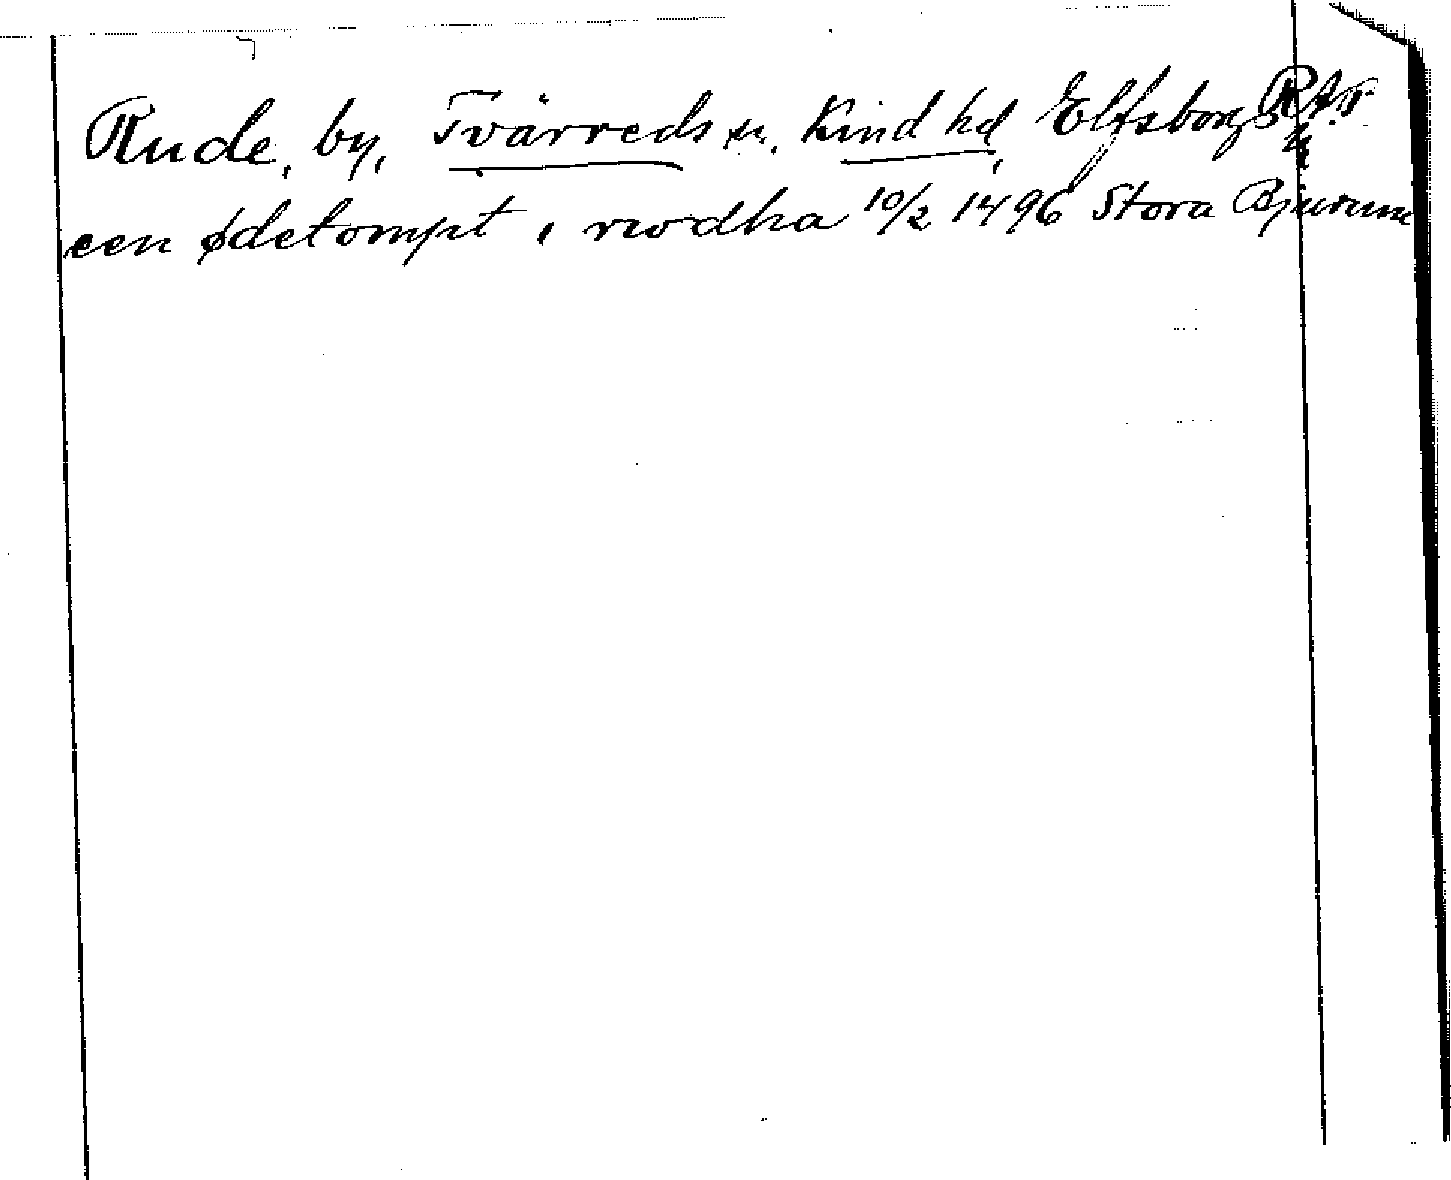 Rude, by, Tvärreds sn. Kind hd, Elfsborg R.A.P.
een ødetompt i rwdha 10/2 1496 Stora Bjurum